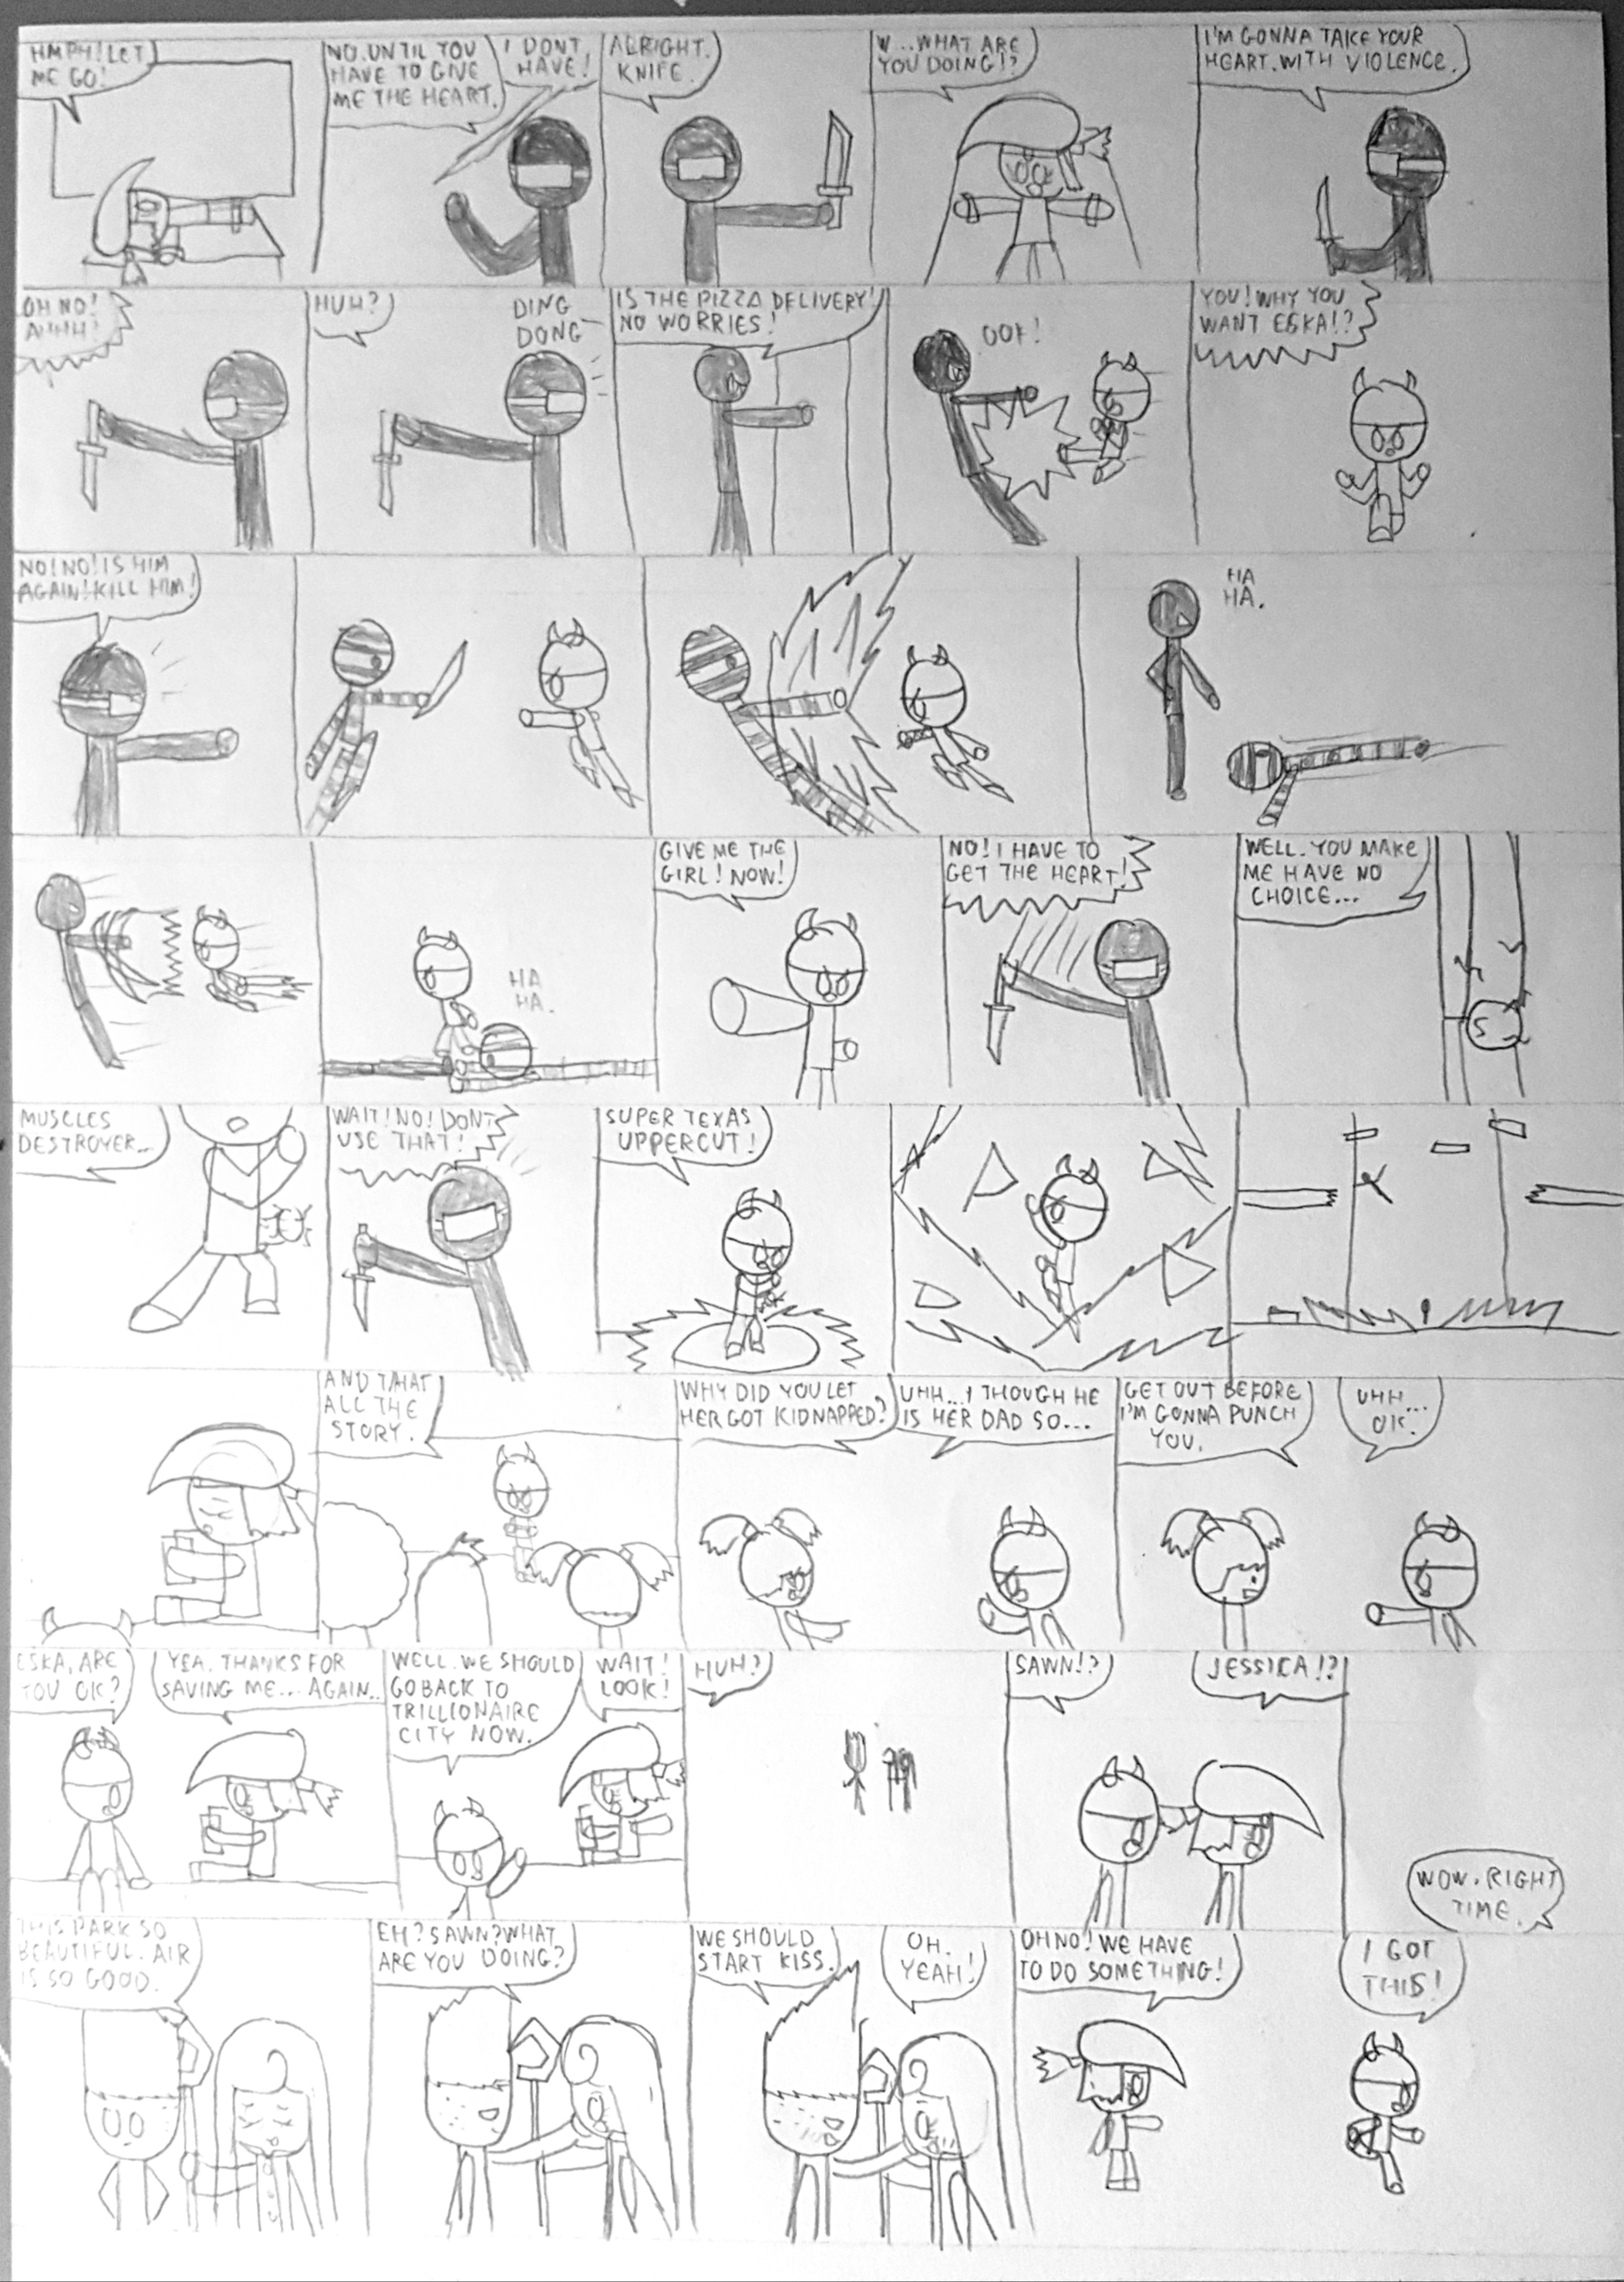 HMPH! LET
ME GO!
NO. UNTIL YOU
HAVE TO GIVE
ME THE HEART.
I DONT
HAVE!
ALRIGHT.
KNIFE.
W...WHAT ARE
YOU DOING!?
I'M GONNA TAKE YOUR
HEART. WITH VIOLENCE.
OH NO!
AHHH!
HUH?
DING
DONG
IS THE PIZZA DELIVERY!
NO WORRIES!
OOF!
YOU! WHY YOU
WANT ESKA!?
NO! NO! IS HIM
AGAIN! KILL HIM!
HA
HA.
HA
HA.
GIVE ME THE
GIRL! NOW!
NO! I HAVE TO
GET THE HEART!
WELL. YOU MAKE
ME HAVE NO
CHOICE...
MUSCLES
DESTROYER...
WAIT! NO! DONT
USE THAT!
SUPER TEXAS
UPPERCUT!
AND THAT
ALL THE
STORY.
WHY DID YOU LET
HER GOT KIDNAPPED?
UHH... I THOUGH HE
IS HER DAD SO...
GET OUT BEFORE
I'M GONNA PUNCH
YOU.
UHH...
OK.
ESKA, ARE
YOU OK?
YEA. THANKS FOR
SAVING ME... AGAIN..
WELL. WE SHOULD
GO BACK TO
TRILLIONAIRE
CITY NOW.
WAIT!
LOOK!
HUH?
SAWN!?
JESSICA!?
WOW. RIGHT
TIME.
THIS PARK SO
BEAUTIFUL. AIR
IS SO GOOD.
EH? SAWN? WHAT
ARE YOU DOING?
WE SHOULD
START KISS.
OH.
YEAH!
OH NO! WE HAVE
TO DO SOMETHING!
I GOT
THIS!